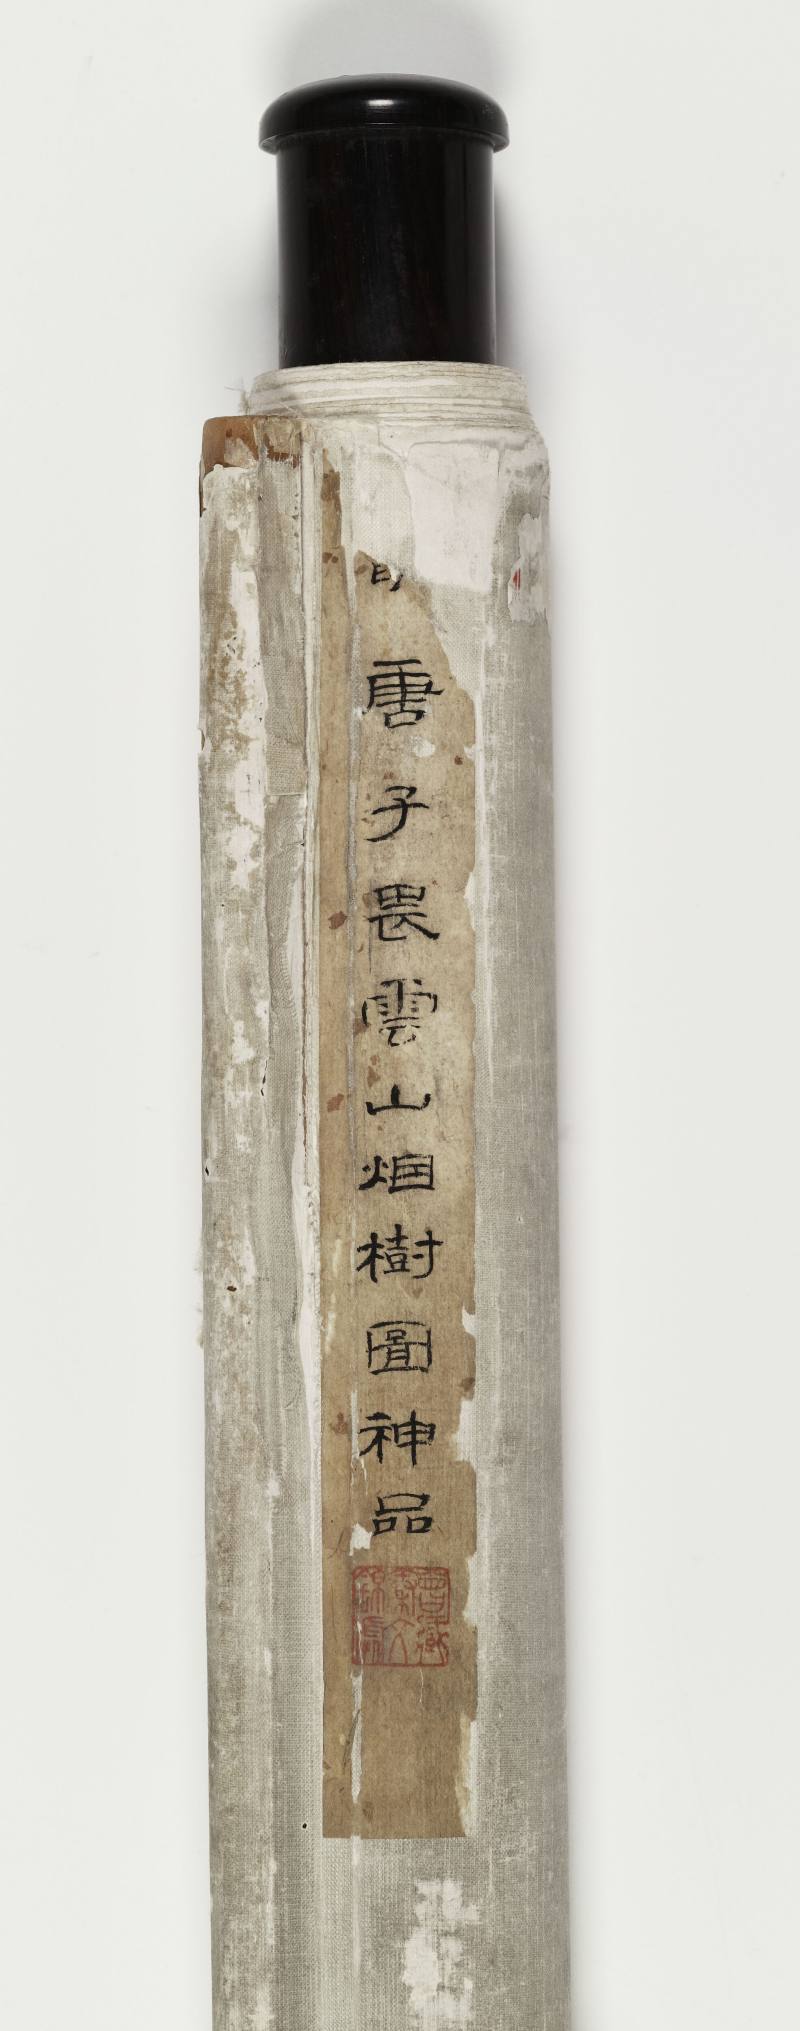 唐子畏雲山烟樹圖神品